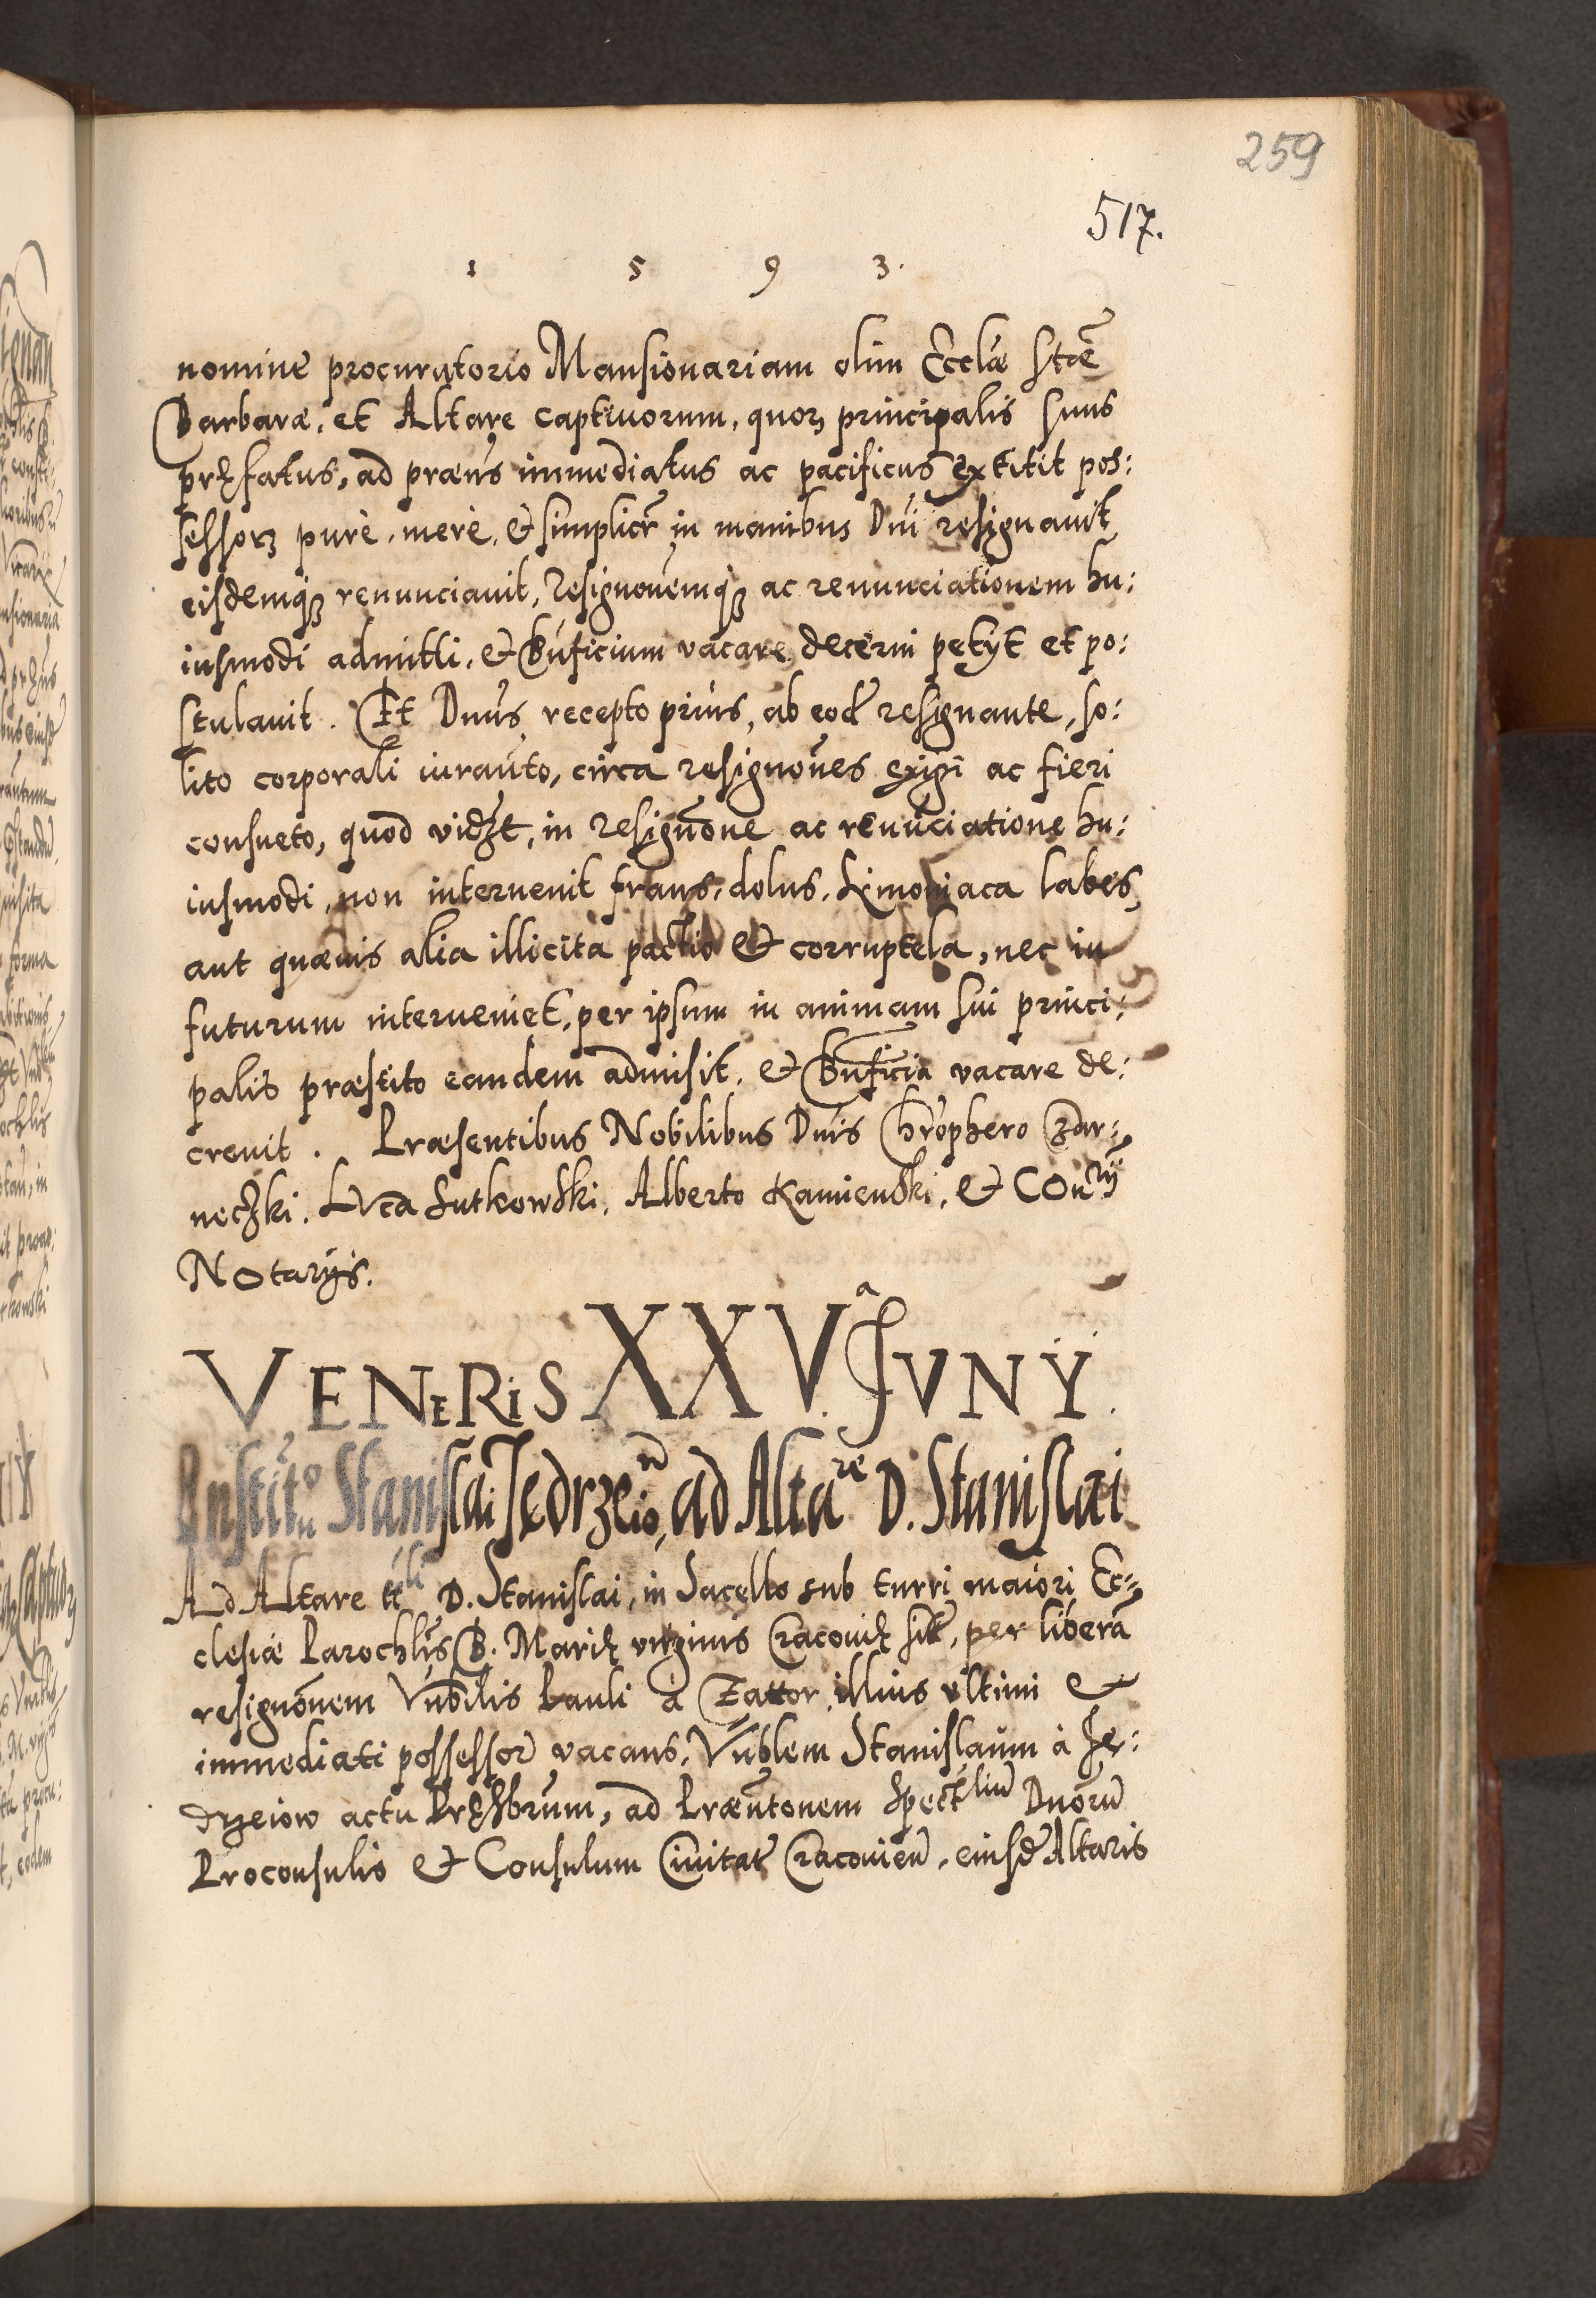 259
517.
1 5 9 3.
nomine procuratorio Mansionariam olim Eccliæ Stæ
Barbaræ, et Altare Captiuorum, quorz principalis suus
pręfatus, ad præns immediatus ac pacificus extitit pos:
sessorz purè, merè, & simplicr in manibus Dni resignauit
eisdemqz renunciauit, Resignonemqz ac renunciationem hu:
iusmodi admitti, & Bnficium vacare decerni petÿt et po:
stulauit. Et Dnus recepto prius, ab eod resignante, so:
lito corporali iuranto, circa resignones exigi ac fieri
consueto, quod vidzt, in resignone ac renuciatione hu:
iusmodi, non interuenit fraus, dolus, Simoniaca labes,
aut quæuis alia illicita pactio & corruptela, nec in
futurum interueniet, per ipsum in animam sui princi:
palis præstito eandem admisit, & Bnficia vacare de:
creuit. Præsentibus Nobilibus Dnis Chrophero Czar:
neczki, Luca Sutkowski, Alberto Kamienski, & Conrÿ
Notarijs.
VENERIS XXVa JVNY.
Institutio Stanislai Jedrzeion, ad Altare D. Stanislai
Ad Altare ttli D. Stanislai, in Sacello sub turri maiori Ec:
clesiæ Parochlis B. Marię virginis Cracouię sit, per liberã
resignonem Vnbilis Pauli à Zattor illius vltimi &
immediati possessor vacans, Vnblem Stanislaum à Je:
drzeiow actu Pręsbrum, ad Præntonem Spectlium Dnorum
Proconsulis & Consulum Ciuitat Cracouien, eiusd Altaris